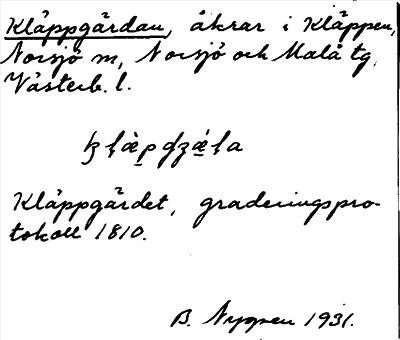 Kläppgärdan, åkrar i Kläppen,
Norsjö sn, Norsjö och Malå tg,
Västerb. l.
Kläppgärdet, graderingspro-
tokoll 1810.
B. Nygren 1931.